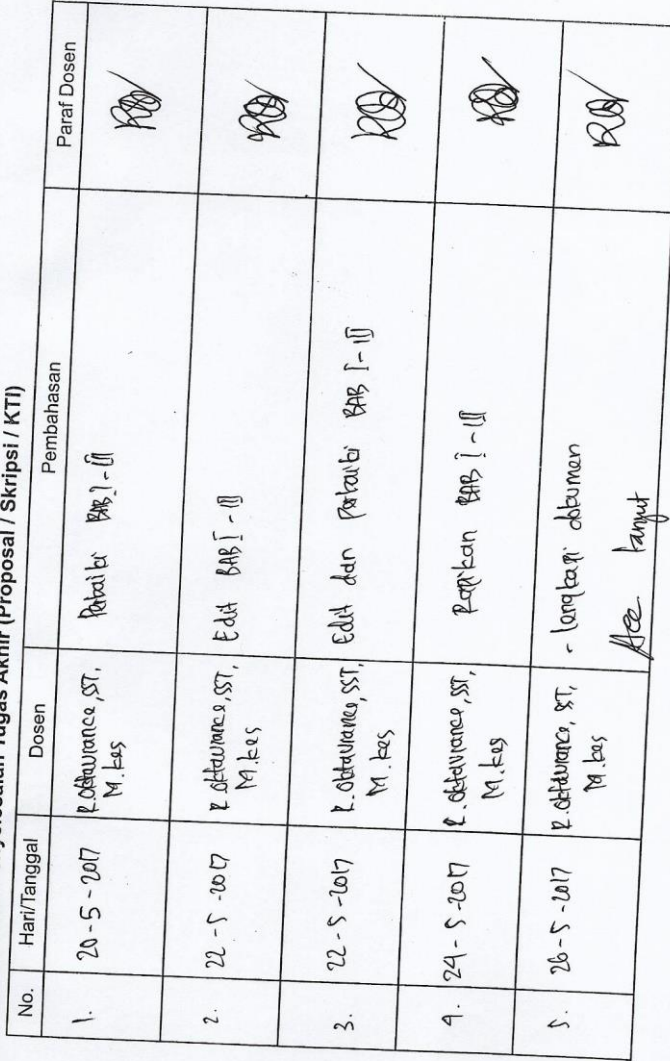 Tugas Akhir (Proposal / Skripsi / KTI)
No. Hari/Tanggal Dosen Pembahasan Paraf Dosen
1. 20-5-2017 R.oktavrance, SST, Perbaiki BAB I - III
M.kes
2. 22-5-2017 R.oktavrance, SST, Edit BAB I - III
M.kes
3. 22-5-2017 R.oktavrance, SST, Edit dan Perbaiki BAB I - III
M.kes
4. 24-5-2017 R.oktavrance, SST, Rapikan BAB I - III
M.kes
5. 26-5-2017 R.oktavrance, SST, - lengkapi dokumen
M.kes
Acc lanjut